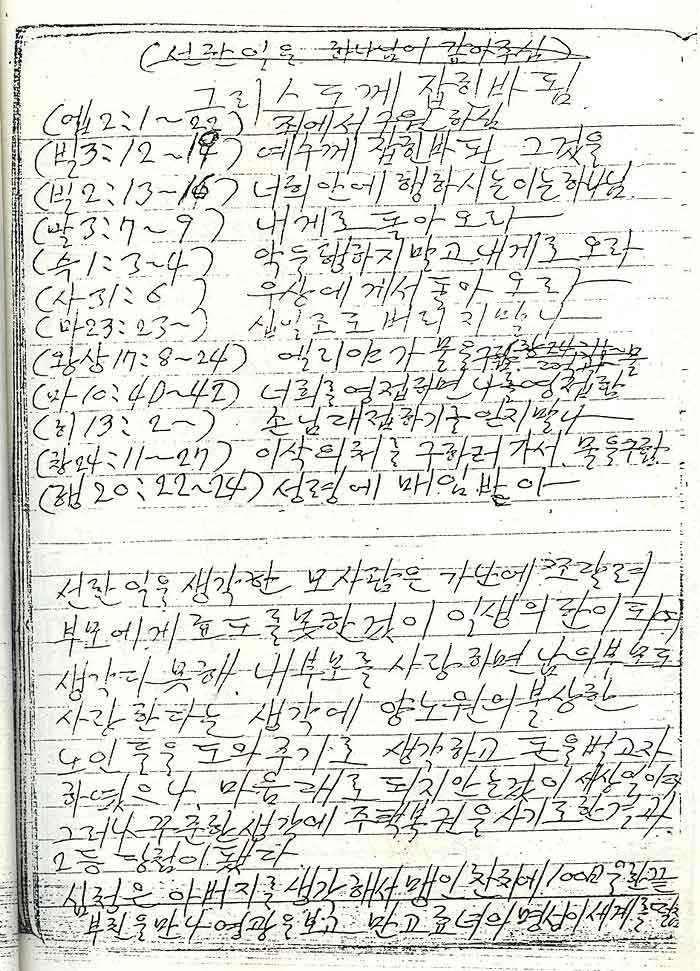 (선한일을 하나님이 갚아주심)
그리스도께 잡힌바 됨
(엡2:1~22) 죄에서 구원하심
(빌3:12~14) 예수께 잡힌바 된 그것을
(빌2:13~16) 너희 안에 행하시는 이는 하나님
(말3:7~9) 내게로 돌아오라
(슥1:3~4) 악을 행하지 말고 내게로 오라
(사31:6) 우상에게서 돌아오라
(마23:23~) 십일조도 버리지 말나
(왕상17:8~24) 엘리야가 물을
(마10:40~42) 너희를 영접하면 나를 영접함
(히13:2~) 손님대접하기를 잊지말나
(창24:11~27) 이삭의 처를 구하러 가서 물을구함
(행20:22~24) 성령에 매임받아
선한일을 생각한 모사람은 가난에 쪼달려
부모에게 효도를 못한것이 일생의 한이 되여
생각다 못해 내부모를 사랑하면 남의부모도
사랑한다는 생각에 양노원의 불상한
노인들을 도와주기로 생각하고 돈을벌고자
하였으나, 마음대로 되지안는것이 세상일이다
그러나 꾸준한 생각에 주택복권을 사기로한결과
2등 당첨이 됐다
심청은 아버지를 생각해서 맹인잔치에 100일을
부친을 만나 영광을보고 만고효녀의 명성이 세계를